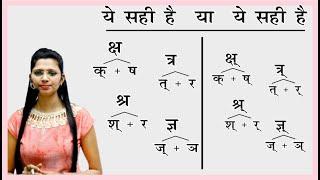 ये सही है या ये सही है
क्ष त्र
क् + ष त् + र
श्र ज्ञ
श् + र ज् + ञ
क्ष् त्र्
क् + ष् त् + र्
श्र् ज्ञ्
श् + र् ज् + ञ्